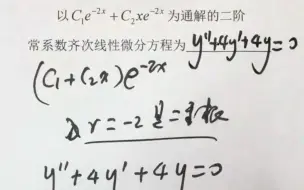 以 C₁e⁻²ˣ + C₂xe⁻²ˣ 为通解的二阶
常系数齐次线性微分方程为 y''+4y'+4y=0
(C₁+C₂x)e⁻²ˣ
r=-2 是二重根
y''+4y'+4y=0